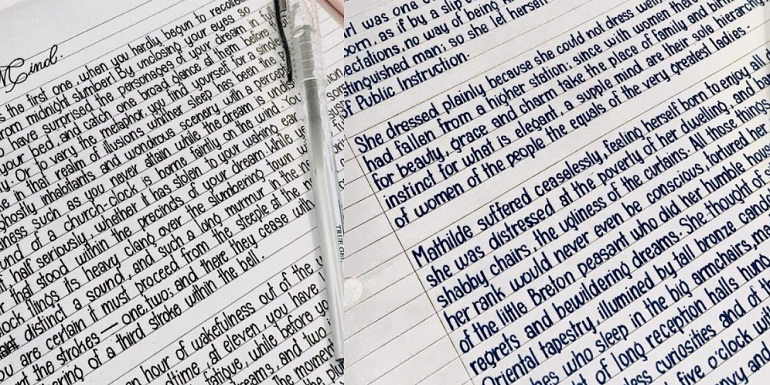 Mind.
s the first one, when you hardly begun to recolle
from midnight slumber! By unclosing your eyes so
have surprised the personages of your dream in full
your bed, and catch one broad glance at them before
y. Or, to vary the metaphor, you find yourself, for a single
e in that realm of illusions, whither sleep has been the
ghostly inhabitants and wondrous scenery, with a percep
ness such as you never attain while the dream is undis
und of a church-clock is borne faintly on the wind. You
half seriously, whether it has stolen to your waking ear
that stood within the precincts of your dream while
lock flings its heavy clang over the slumbering town
distinct a sound, and such a long murmur in the
ou are certain it must proceed from the steeple at the
nt the strokes — one, two; and there they cease with
hering of a third stroke within the bell.
an hour of wakefulness out of the
time, at eleven you have
fatigue, while before yo
dreams, and two
the momen
TRUE GEL
rl was one
orn, as if by a slip
ectations, no way of being
tinguished man; so she let herself
f Public Instruction.
She dressed plainly because she could not dress well
had fallen from a higher station; since with women there
for beauty, grace and charm take the place of family and birth
instinct for what is elegant, a supple mind are their sole hierarch
of women of the people the equals of the very greatest ladies.
Mathilde suffered ceaselessly, feeling herself born to enjoy all d
she was distressed at the poverty of her dwelling, and
shabby chairs, the ugliness of the curtains. All those things
her rank would never even be conscious, tortured her
of the little Breton peasant who did her humble hous
regrets and bewildering dreams. She thought of s
Oriental tapestry, illumined by tall bronze cande
who sleep in the big armchairs, ma
of long reception halls hung
less curiosities and of th
five o'clock wit
vy and